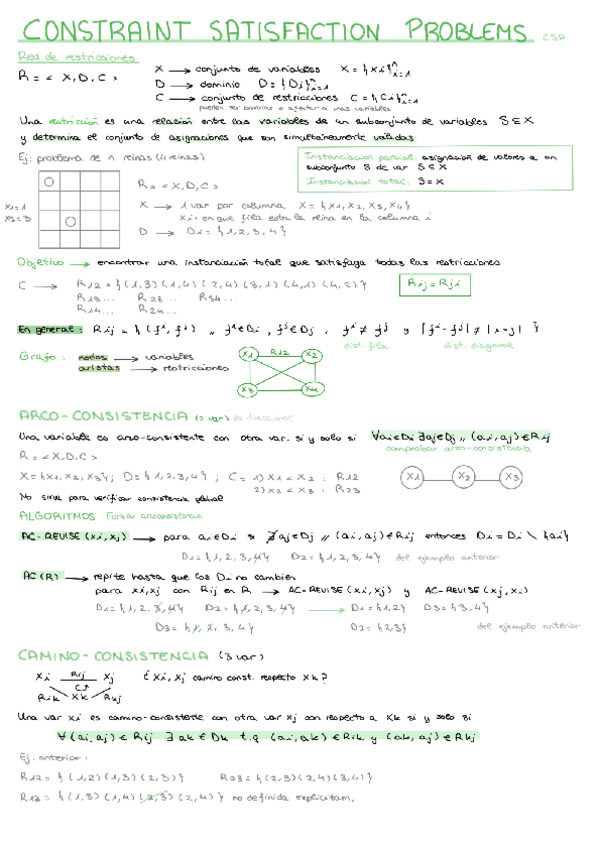 CONSTRAINT SATISFACTION PROBLEMS CSP
Red de restricciones
R = < X, D, C >
X → conjunto de variables X = { Xi }ⁿi=1
D → dominio D = { Di }ⁿi=1
C → conjunto de restricciones C = { Ci }ⁿi=1
pueden ser binarias o afectar a más variables
Una restricción es una relación entre las variables de un subconjunto de variables S ⊆ X
y determina el conjunto de asignaciones que son simultáneamente válidas
Ej: problema de n reinas (4 reinas)
Instanciación parcial: asignación de valores a un
subconjunto S de var S ⊆ X
Instanciación total: S = X
X1 = 1
X2 = 3
R = < X, D, C >
X → 1 var por columna X = { X1, X2, X3, X4 }
Xi: en que fila esta la reina en la columna i
D → Di = { 1, 2, 3, 4 }
Objetivo → encontrar una instanciación total que satisfaga todas las restricciones
C → R12 = { (1,3) (1,4) (2,4) (3,1) (4,1) (4,2) }
Rij = Rji
R13... R23... R34...
R14... R24...
En general: Rij = { (fi, fj) ,, fi ∈ Di, fj ∈ Dj, fi ≠ fj y |fi - fj| ≠ |i - j| }
dist. fila dist. diagonal
Grafo: nodos → variables
aristas → restricciones
X1 R12 X2
X3 X4
ARCO-CONSISTENCIA (2 var) es direccional
Una variable es arco-consistente con otra var. si y solo si ∀ai ∈ Di ∃aj ∈ Dj ,, (ai, aj) ∈ Rij
comprobar arco-consistencia
R = < X, D, C >
X = { X1, X2, X3 } ; D = { 1, 2, 3, 4 } ; C = 1) X1 < X2 : R12
2) X2 < X3 : R23
X1 X2 X3
No sirve para verificar consistencia global
ALGORITMOS Forzar arcoconsistencia
AC-REVISE (xi, xj) → para ai ∈ Di si ∄aj ∈ Dj // (ai, aj) ∈ Rij entonces Di = Di \ {ai}
D1 = { 1, 2, 3, 4 } D2 = { 1, 2, 3, 4 } del ejemplo anterior
AC (R) → repite hasta que los Di no cambien
para xi, xj con Rij en R → AC-REVISE (xi, xj) y AC-REVISE (xj, xi)
D1 = { 1, 2, 3, 4 } D2 = { 1, 2, 3, 4 } → D1 = { 1, 2 } D3 = { 3, 4 }
D3 = { 1, 2, 3, 4 } D2 = { 2, 3 } del ejemplo anterior
CAMINO-CONSISTENCIA (3 var)
Xi Rij Xj ¿ Xi, Xj camino const. respecto Xk?
Rik Xk Rkj
Una var Xi es camino-consistente con otra var Xj con respecto a Xk si y solo si
∀ (ai, aj) ∈ Rij ∃ ak ∈ Dk t.q (ai, ak) ∈ Rik y (ak, aj) ∈ Rkj
Ej. anterior:
R12 = { (1,2) (1,3) (2,3) } R23 = { (2,3) (2,4) (3,4) }
R13 = { (1,3) (1,4) (2,3) (2,4) } no definida explicitam.